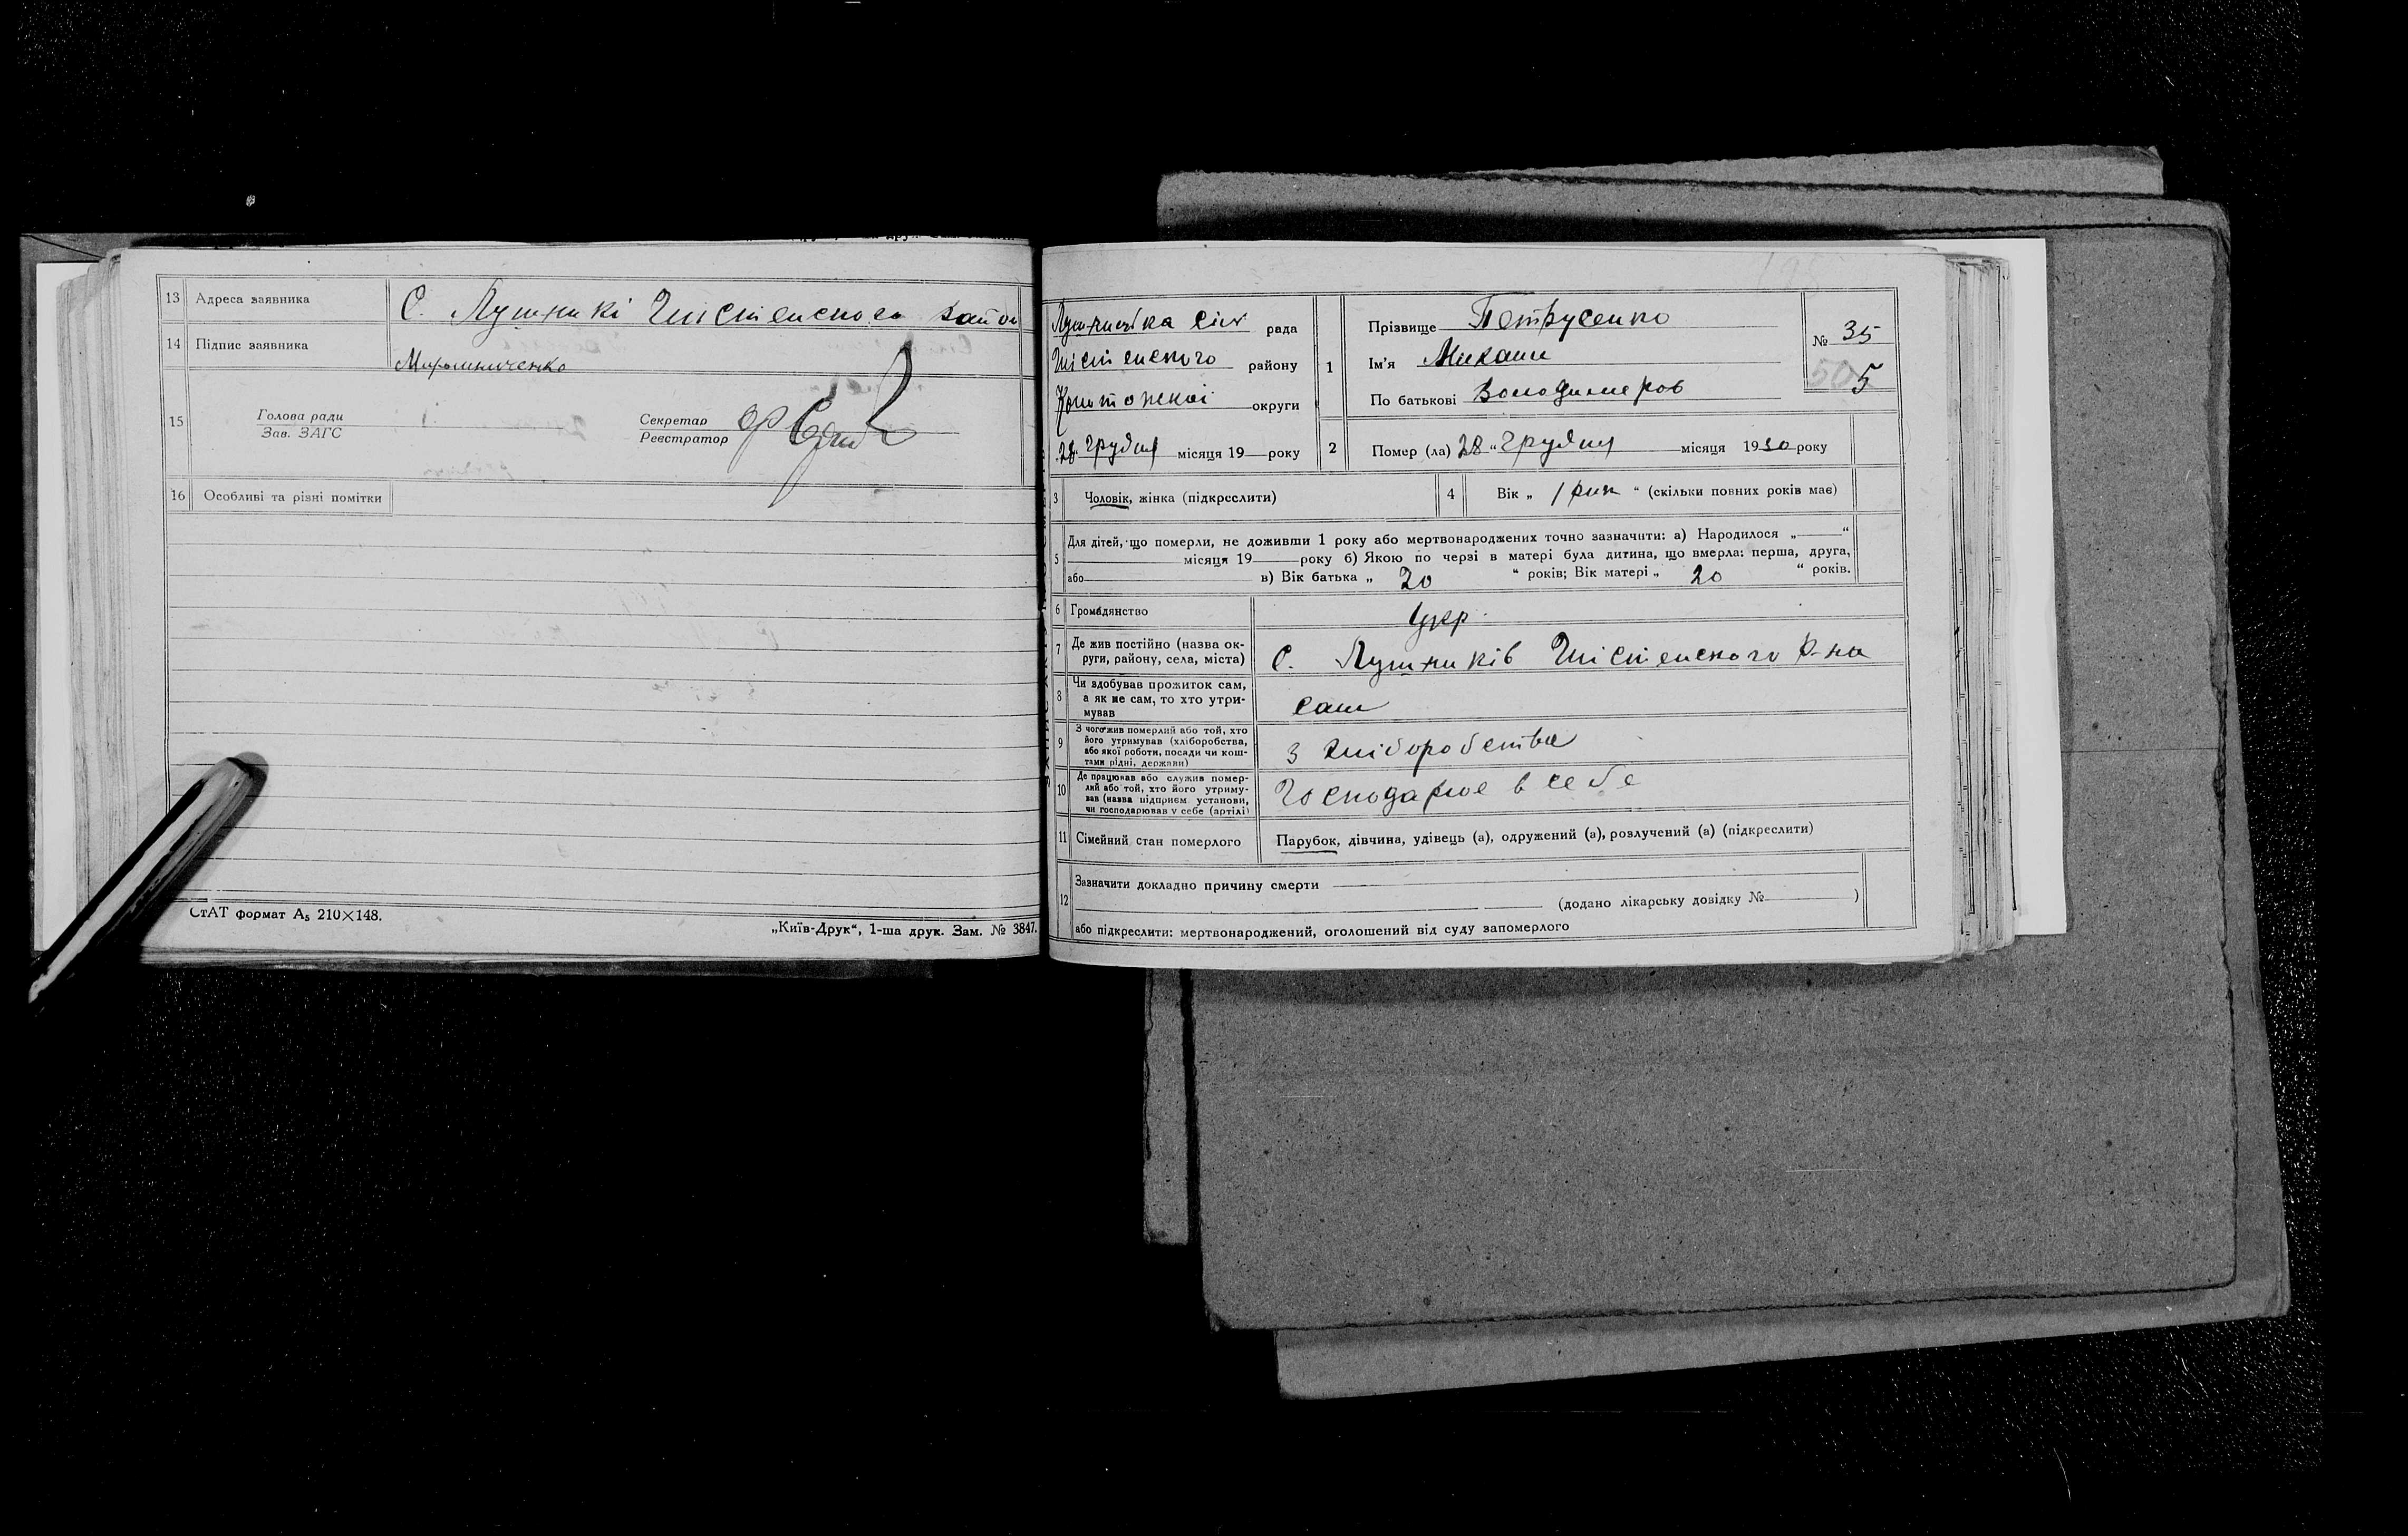 13 Адреса заявника С. Лушникі Шістенского Район
14 Підпис заявника Мирошниченко
15 Голова ради Зав. ЗАГС Секретар Реєстратор
16 Особливі та різні помітки
СтАТ формат А5 210×148.
„Київ-Друк“, 1-ша друк. Зам. № 3847.
рада
Шістенского району
округи
28 Грудня місяця 19 року
1 Прізвище Петрусенко
Ім'я Михаил
По батькові Володимеров
№ 35
5
2 Помер (ла) 28 „ Грудня місяця 1930 року
3 Чоловік, жінка (підкреслити)
4 Вік „ 1 рик “ (скільки повних років має)
5 Для дітей, що померли, не доживши 1 року або мертвонароджених точно зазначити: а) Народилося „ “
місяця 19 року б) Якою по черзі в матері була дитина, що вмерла: перша, друга,
або в) Вік батька „ 20 “ років; Вік матері „ 20 “ років.
6 Громадянство Укр.
7 Де жив постійно (назва ок-
руги, району, села, міста) С. Лушників Шістенского Р-на
8 Чи здобував прожиток сам,
а як не сам, то хто утри-
мував сам
9 З чого жив померлий або той, хто
його утримував (хліборобства,
або якої роботи, посади чи кош-
тами рідні, держави) З хліборобства
10 Де працював або служив помер-
лий або той, хто його утриму-
вав (назва підприєм. установи,
чи господарював у себе (артілі) Господарює в себе
11 Сімейний стан померлого Парубок, дівчина, удівець (а), одружений (а), розлучений (а) (підкреслити)
12 Зазначити докладно причину смерти
(додано лікарську довідку № )
або підкреслити: мертвонароджений, оголошений від суду запомерлого